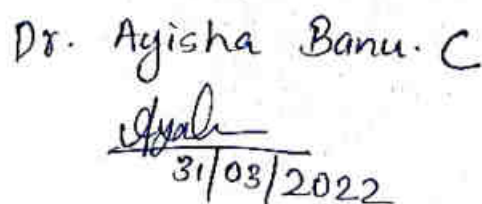 Dr. Ayisha Banu. C
31/03/2022